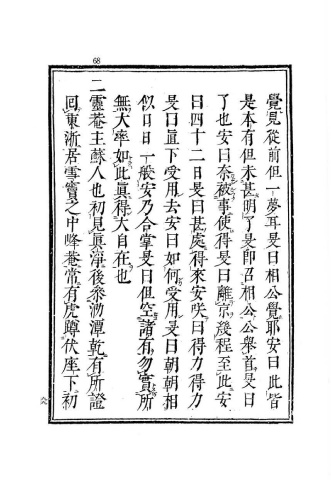 68
覺見從前但一夢耳旻曰相公覺耶安曰此皆
是本有但未甚明了旻即召相公公舉首旻曰
了也安曰奈被事使得旻曰離京幾程至此安
曰四十二日旻曰甚處得來安咲曰得力得力
旻曰直下受用去安曰如何受用旻曰朝朝相
似日日一般安乃合掌旻曰但空諸有勿實所
無大率如此眞得大自在也
二靈菴主蘇人也初見眞淨後參泐潭乾有所證
回東浙居雪竇之中峰菴常有虎蹲伏座下初